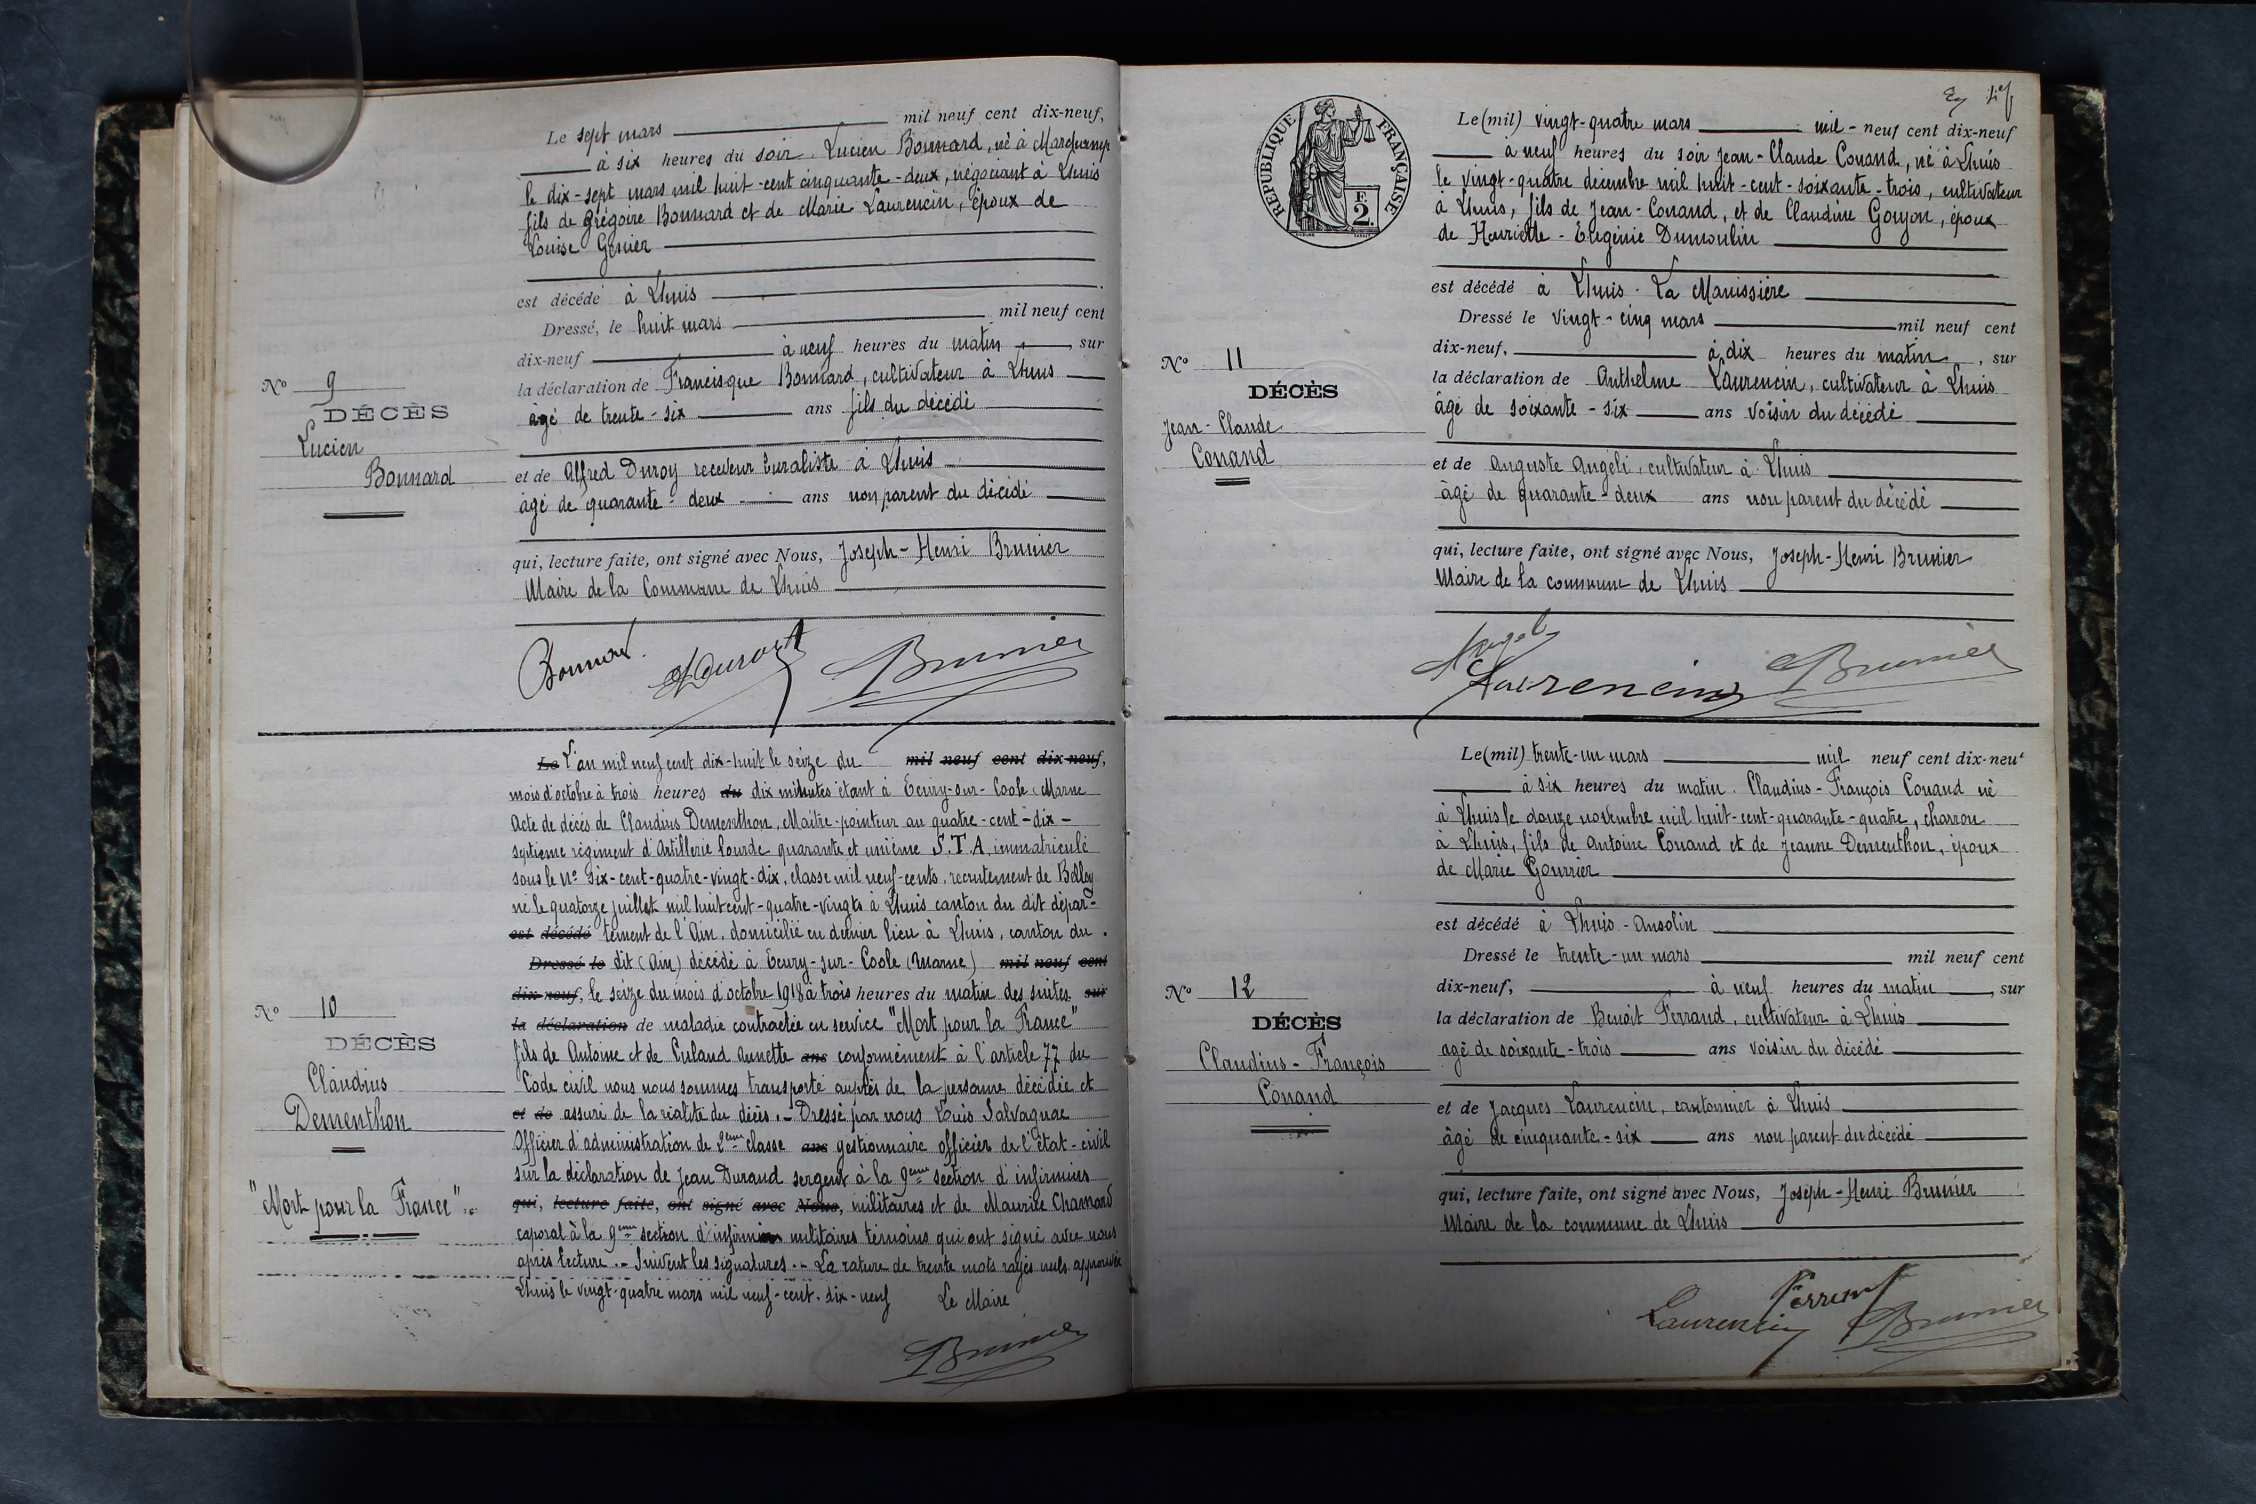 Le sept mars mil neuf cent dix-neuf,
à six heures du soir. Lucien Bonnard, né à
le dix-sept mars mil huit-cent cinquante-deux, négociant à Lhuis
fils de Grégoire Bonnard et de Marie Laurencin, époux de
Louise Genier
est décédé à Lhuis
Dressé, le huit mars mil neuf cent
dix-neuf à neuf heures du matin, sur
la déclaration de Francisque Bonnard, cultivateur à Lhuis
âgé de trente-six ans fils du décédé
et de Alfred Duroy receveur buraliste à Lhuis
âgé de quarante-deux ans non parent du décédé
qui, lecture faite, ont signé avec Nous, Joseph-Henri Brunier
Maire de la Commune de Lhuis
N° 9
DÉCÈS
Lucien
Bonnard
Bonnard.
Brunier
Le L'an mil neuf cent dix-huit le seize du mil neuf cent dix-neuf,
mois d'octobre à trois heures du dix minutes étant à Ecury-sur-Coole (Marne
Acte de décès de Claudius Dementhon, Maître-pointeur au quatre-cent-dix-
septième régiment d'Artillerie lourde quarante et unième S.T.A. immatriculé
sous le N° Six-cent-quatre-vingt-dix, classe mil neuf-cents, recrutement de Belley
né le quatorze juillet mil huit cent-quatre-vingts à Lhuis canton du dit dépar-
est décédé tement de l'Ain, domicilié en dernier lieu à Lhuis, canton du
Dressé le dit (Ain) décédé à Ecury-sur-Coole (Marne) mil neuf cent
dix-neuf, le seize du mois d'octobre 1918 à trois heures du matin des suites sur
la déclaration de maladie contractée en service "Mort pour la France"
fils de Antoine et de Culand Annette ans conformément à l'article 77 du
Code civil nous nous sommes transporté auprès de la personne décédée et
et de assuré de la réalité du décès. - Dressé par nous Louis Salvagnac
Officier d'administration de 2ème classe ans gestionnaire officier de l'État-civil
sur la déclaration de Jean Durand sergent à la 9ème section d'infirmiers
qui, lecture faite, ont signé avec Nous, militaires et de Maurice Chamard
caporal à la 9ème section d'infirmiers militaires témoins qui ont signé avec nous
après lecture. - Suivent les signatures. - La rature de trente mots rayés nuls approuvée
Lhuis le vingt-quatre mars mil neuf-cent-dix-neuf Le Maire
N° 10
DÉCÈS
Claudius
Dementhon
"Mort pour la France".
Brunier
RÉPUBLIQUE FRANÇAISE
F.
2
Le (mil) vingt-quatre mars mil-neuf cent dix-neuf
à neuf heures du soir Jean-Claude Conand, né à Lhuis
le vingt-quatre décembre mil huit-cent-soixante-trois, cultivateur
à Lhuis, fils de Jean-Conand, et de Claudine Goujon, époux
de Henriette-Eugénie Dumoulin
est décédé à Lhuis. La Manissière
Dressé le vingt-cinq mars mil neuf cent
dix-neuf, à dix heures du matin, sur
la déclaration de Anthelme Laurencin, cultivateur à Lhuis
âgé de soixante-six ans voisin du décédé
et de Auguste Angeli, cultivateur à Lhuis
âgé de quarante-deux ans non parent du décédé
qui, lecture faite, ont signé avec Nous, Joseph-Henri Brunier
Maire de la commune de Lhuis
N° 11
DÉCÈS
Jean-Claude
Conand
Laurencin
Brunier
Le (mil) trente-un mars mil neuf cent dix-neuf
à six heures du matin. Claudius-François Conand né
à Lhuis le douze novembre mil huit-cent-quarante-quatre, charron
à Lhuis, fils de Antoine Conand et de Jeanne Dementhon, époux
de Marie Gourrier
est décédé à Lhuis-Ansolin
Dressé le trente-un mars mil neuf cent
dix-neuf, à neuf heures du matin, sur
la déclaration de Benoît Ferrand, cultivateur à Lhuis
âgé de soixante-trois ans voisin du décédé
et de Jacques Laurencin, cantonnier à Lhuis
âgé de cinquante-six ans non parent du décédé
qui, lecture faite, ont signé avec Nous, Joseph-Henri Brunier
Maire de la commune de Lhuis
N° 12
DÉCÈS
Claudius-François
Conand
Ferrand
Laurencin
Brunier